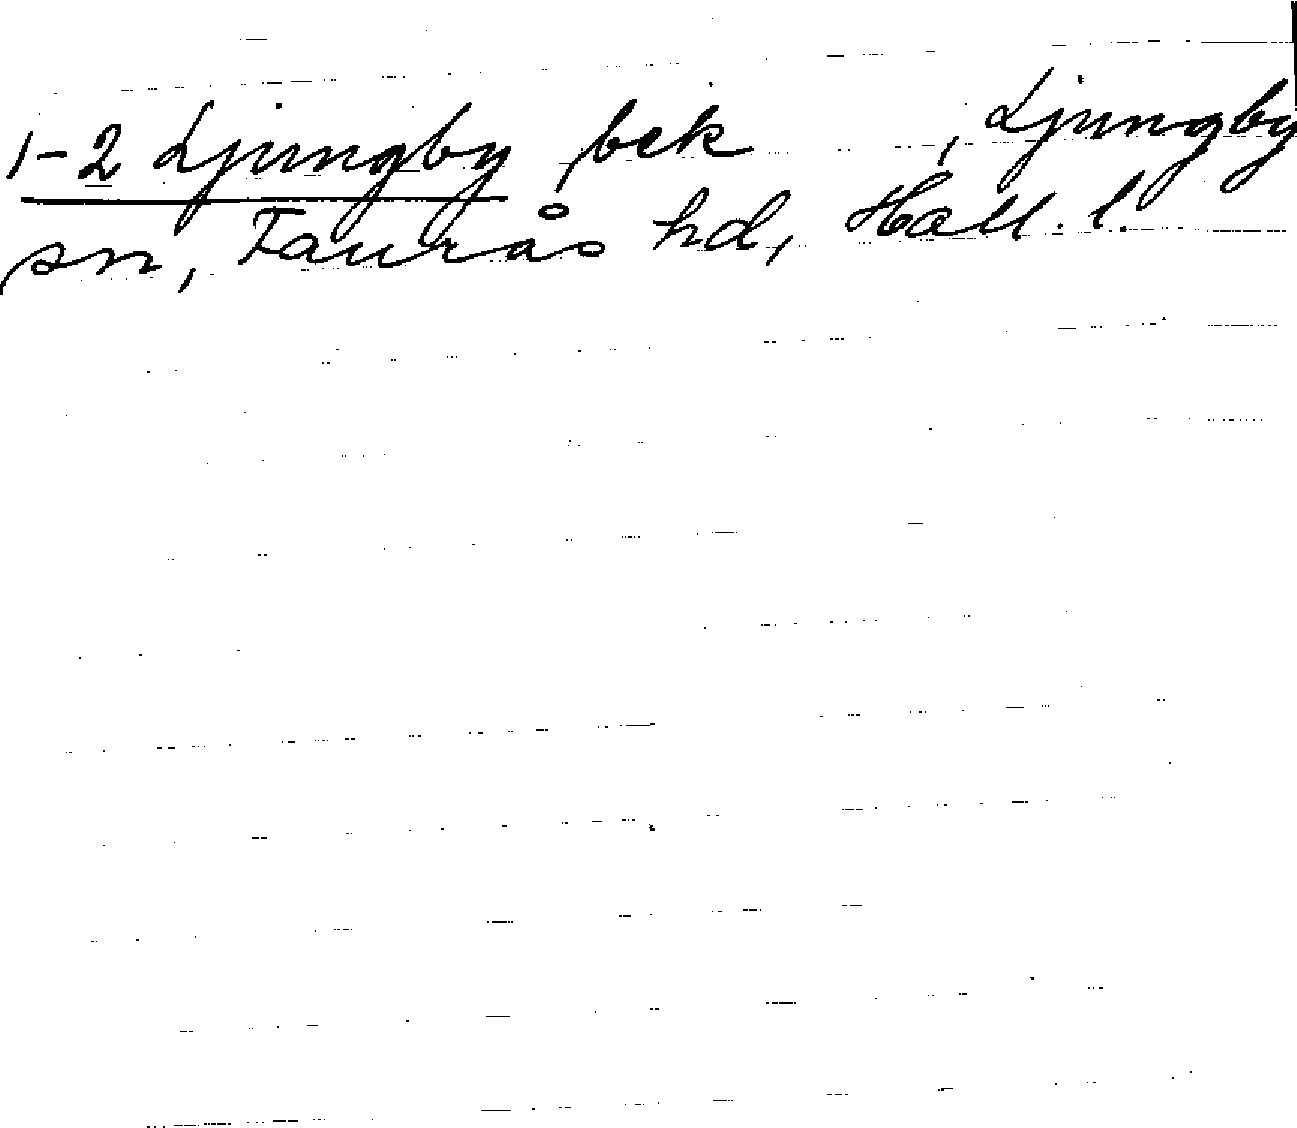 1-2 Ljungby bek , Ljungby
sn, Faurås hd, Hall. l.